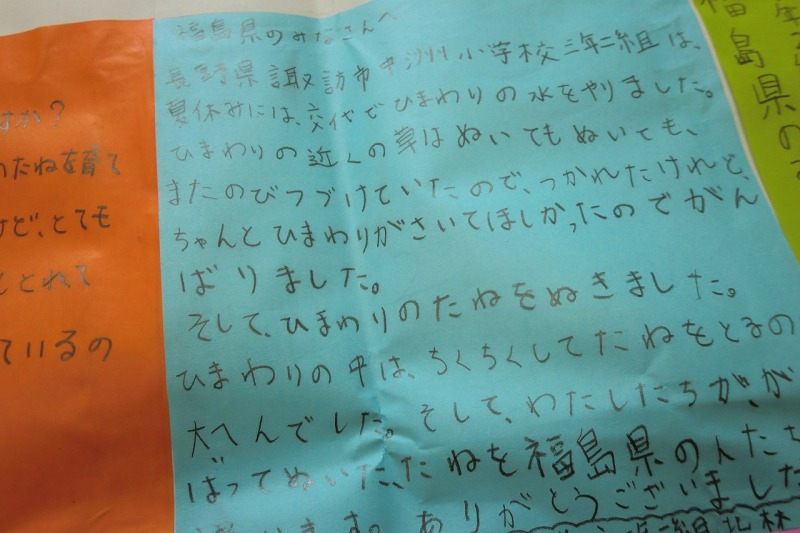 福島県のみなさんへ
長野県諏訪市中洲小学校三年二組は、
夏休みには、交代でひまわりの水をやりました。
ひまわりの近くの草はぬいてもぬいても、
またのびつづけていたので、つかれたけれど、
ちゃんとひまわりがさいてほしかったのでがん
ばりました。
そして、ひまわりのたねをぬきました。
ひまわりの中は、ちくちくしてたねをとるの
大へんでした。そして、わたしたちが、が
ばってぬいた、たねを福島県の人たち
います。ありがとうございました
二組北林
すか?
のたねを育て
けど、とても
とれて
ているの
福島県の